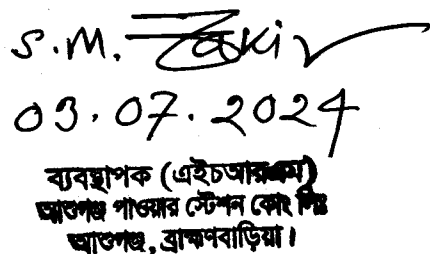 S.M. Zakir
03.07.2024
ব্যবস্থাপক (এইচআরএম)
আশুগঞ্জ পাওয়ার স্টেশন কোং লিঃ
আশুগঞ্জ, ব্রাহ্মণবাড়িয়া।